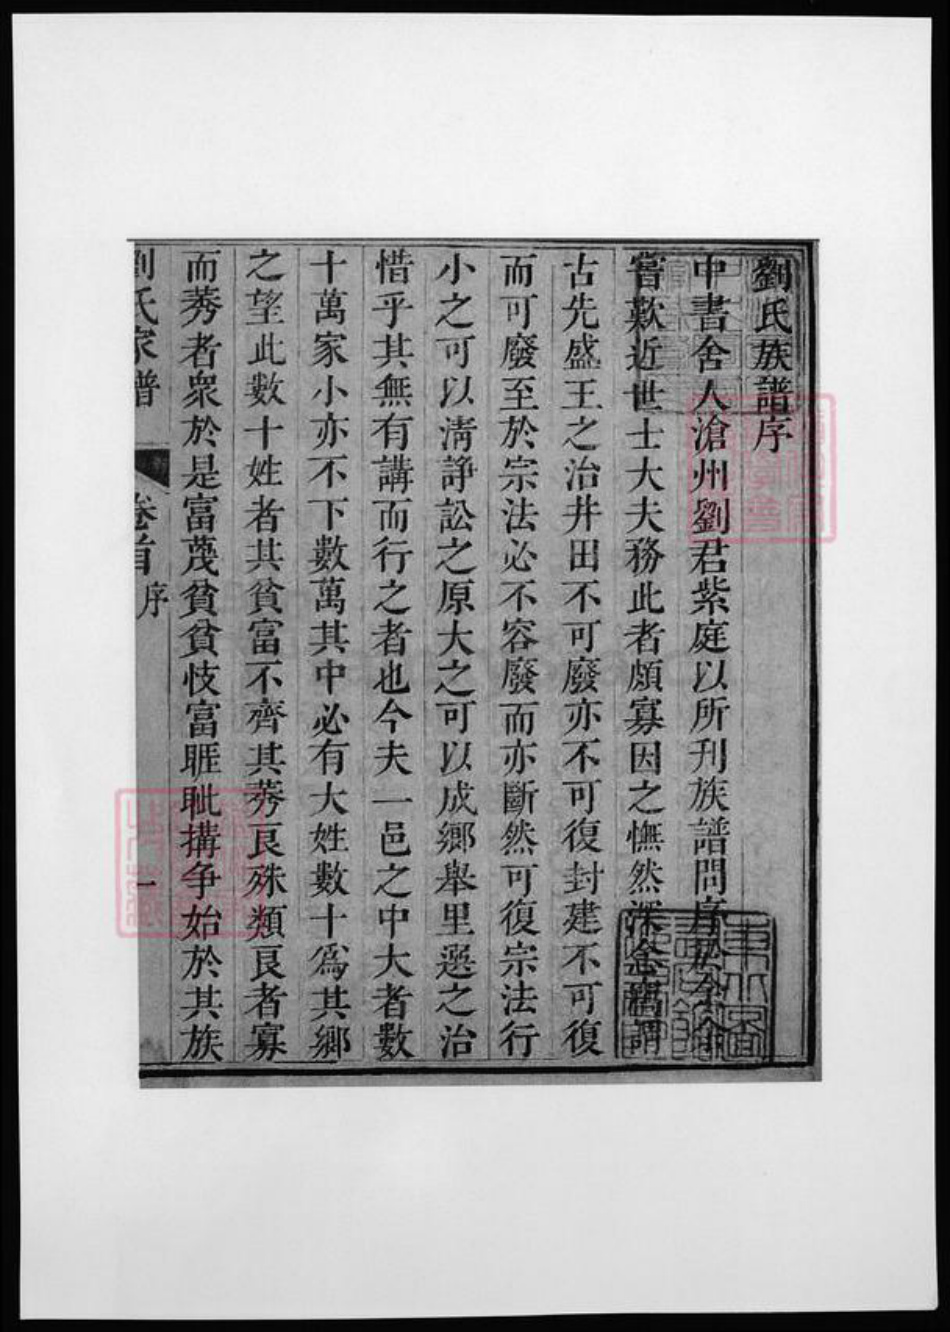 劉氏族譜序
中書舍人滄州劉君紫庭以所刊族譜問序於余余
嘗歎近世士大夫務此者頗寡因之憮然深念竊謂
古先盛王之治井田不可廢亦不可復封建不可復
而可廢至於宗法必不容廢而亦斷然可復宗法行
小之可以清諍訟之原大之可以成鄉舉里選之治
惜乎其無有講而行之者也今夫一邑之中大者數
十萬家小亦不下數萬其中必有大姓數十爲其鄉
之望此數十姓者其貧富不齊其莠良殊類良者寡
而莠者衆於是富蔑貧貧忮富睚眦搆争始於其族
劉氏家譜 卷首 序 一